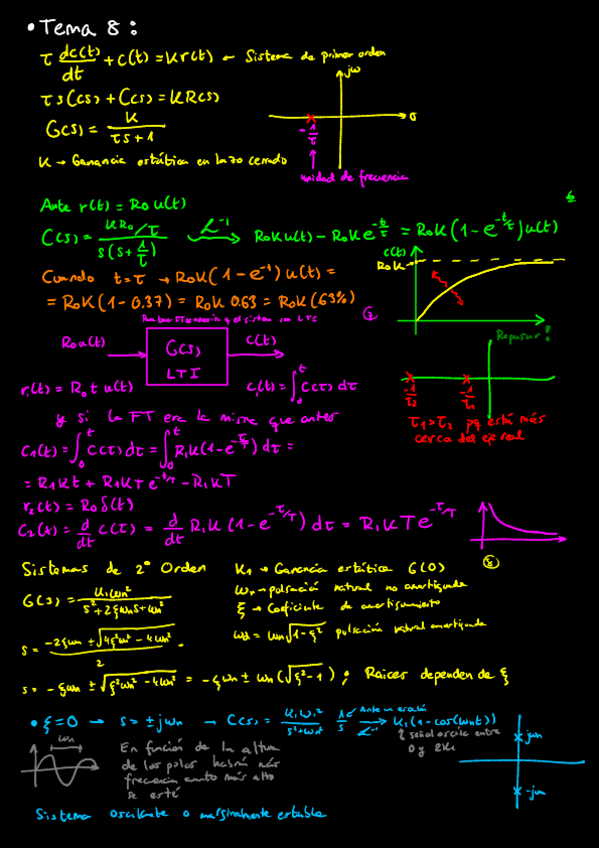 • Tema 8:
τ dc(t)/dt + c(t) = K r(t) ← Sistema de primer orden
τ s C(s) + C(s) = K R(s)
G(s) = K/(τs+1)
K → Ganancia estática en lazo cerrado
jω
σ
-1/τ
unidad de frecuencia
Ante r(t) = R₀ u(t)
C(s) = (K R₀/τ)/(s(s+1/τ)) ℒ⁻¹→ R₀K u(t) - R₀K e^(-t/τ) = R₀K(1-e^(-t/τ)) u(t)
Cuando t=τ → R₀K(1-e⁻¹) u(t) =
= R₀K(1-0.37) = R₀K 0.63 = R₀K(63%)
c(t)
R₀K
R₀u(t) → G(s) LTI → C(t)
r₁(t) = R₀ t u(t)
c₁(t) = ∫₀ᵗ C(τ) dτ
Repasar!!
-1/τ₂ -1/τ₁
τ₁>τ₂ pq está más
cerca del eje real
y si la FT era la misma que antes
C₁(t) = ∫₀ᵗ C(τ) dτ = ∫₀ᵗ R₁K(1-e^(-τ/T)) dτ =
= R₁Kt + R₁KT e^(-t/T) - R₁KT
r₂(t) = R₀ δ(t)
C₂(t) = d/dt C(τ) = d/dt R₁K(1-e^(-τ/T)) dτ = R₁KT e^(-τ/T)
Sistemas de 2º Orden
K₁ → Ganancia estática G(0)
G(s) = K₁ωn²/(s²+2ξωns+ωn²)
ωn → pulsación natural no amortiguada
ξ → Coeficiente de amortiguamiento
ωd = ωn√(1-ξ²) pulsación natural amortiguada
s = (-2ξωn ± √(4ξ²ωn² - 4ωn²))/2
s = -ξωn ± √(ξ²ωn² - 4ωn²) = -ξωn ± ωn(√(ξ²-1)); Raices dependen de ξ
• ξ=0 → s = ±jωn → C(s) = K₁ωn²/(s²+ωn²) 1/s ℒ⁻¹→ K₁(1-cos(ωnt))
Ante un escalón
↑ señal oscila entre
0 y 2K₁
ωn
En función de la altura
de los polos habrá más
frecuencia cuanto más alto
se esté
jωn
-jωn
Sistema oscilante o marginalmente estable